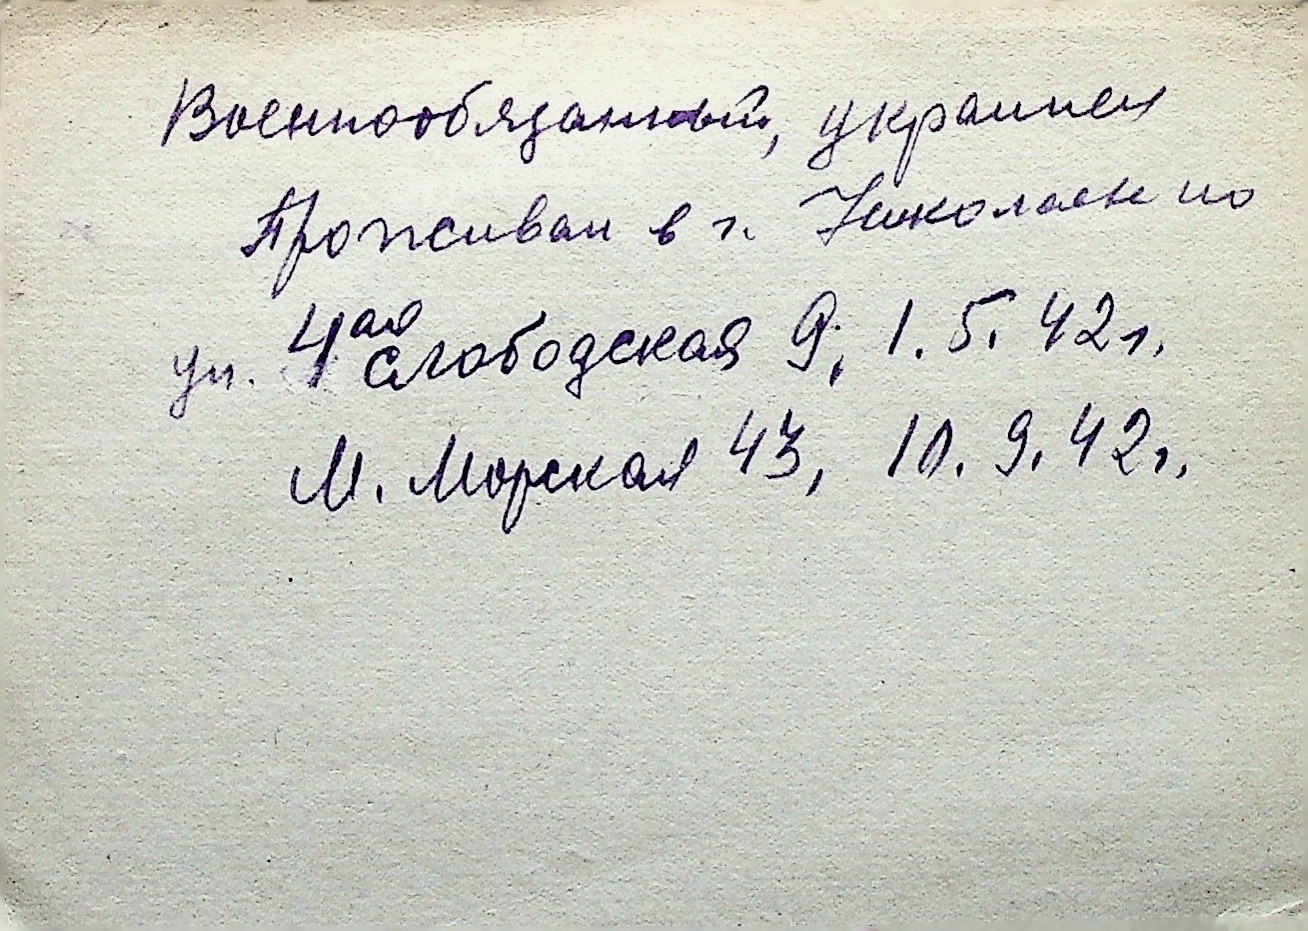 Военнообязанный, украинец
Проживал в г. Николаеве по
ул. 4ая Слободская 9, 1.5.42г.
М. Морская 43, 10.9.42г.